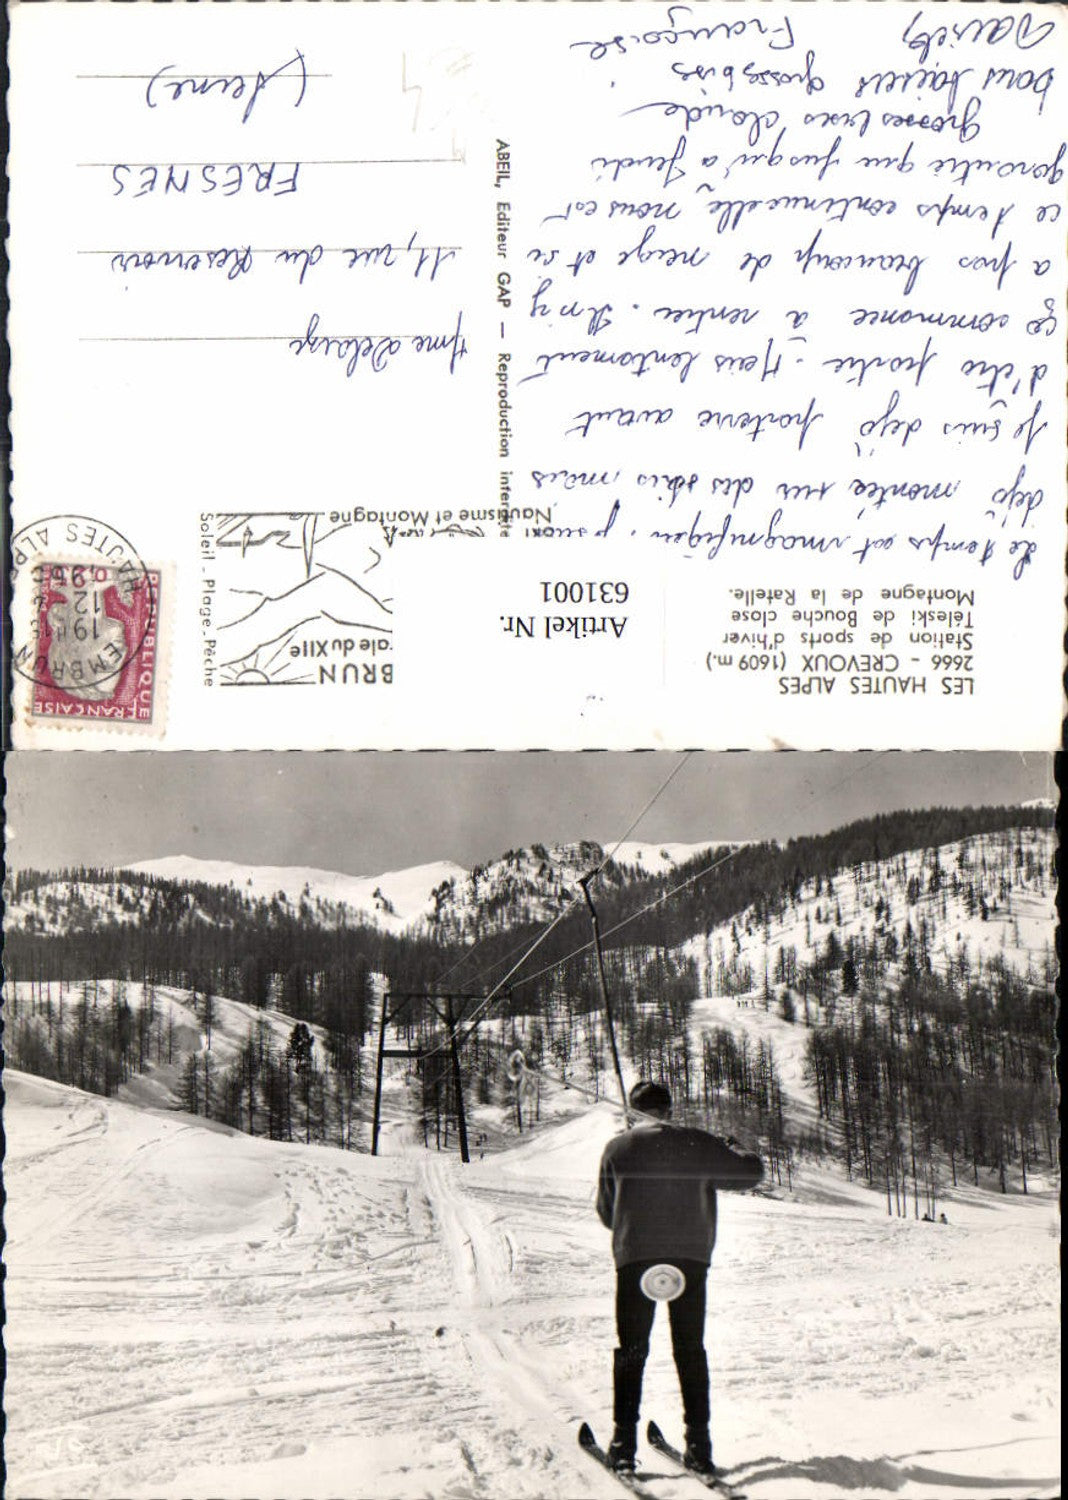 LES HAUTES ALPES
2666 - CREVOUX (1609 m.)
Station de sports d'hiver
Téleski de Bouche close
Montagne de la Ratelle.
Artikel Nr.
631001
BRUN
ale du XIIe
Nautisme et Montagne
Soleil - Plage - Pêche
EMBRUN
HAUTES ALPES
19H15
12-2
RÉPUBLIQUE
FRANÇAISE
ABEIL, Editeur GAP — Reproduction interdite
le temps est magnifique.
déjà montée sur des skis mais
je suis déjà par terre avant
d'être partie. Mais lentement
ça commence à rentrer. Il n'y
a pas beaucoup de neige et si
ce temps continue elle nous est
garantie que jusqu'à Jeudi
grosses bises Claude
bons baisers grosses bises
Daniel, Françoise
Mme Delarge
11, rue du Réservoir
FRESNES
(Seine)